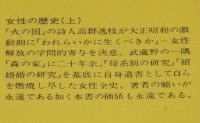 女性の歴史(上)
「火の国」の詩人高群逸枝が大正昭和の激
動期に「われらいかに生くべきか」―女性
解放の学問的寄与を決意。武蔵野の一隅
“森の家”に二十有余年。『母系制の研究』『招
婿婚の研究』を基底に自身遺書として自ら
を燃焼し尽した女性全史。著者の願いが
永遠である如く本書の価値も永遠である。